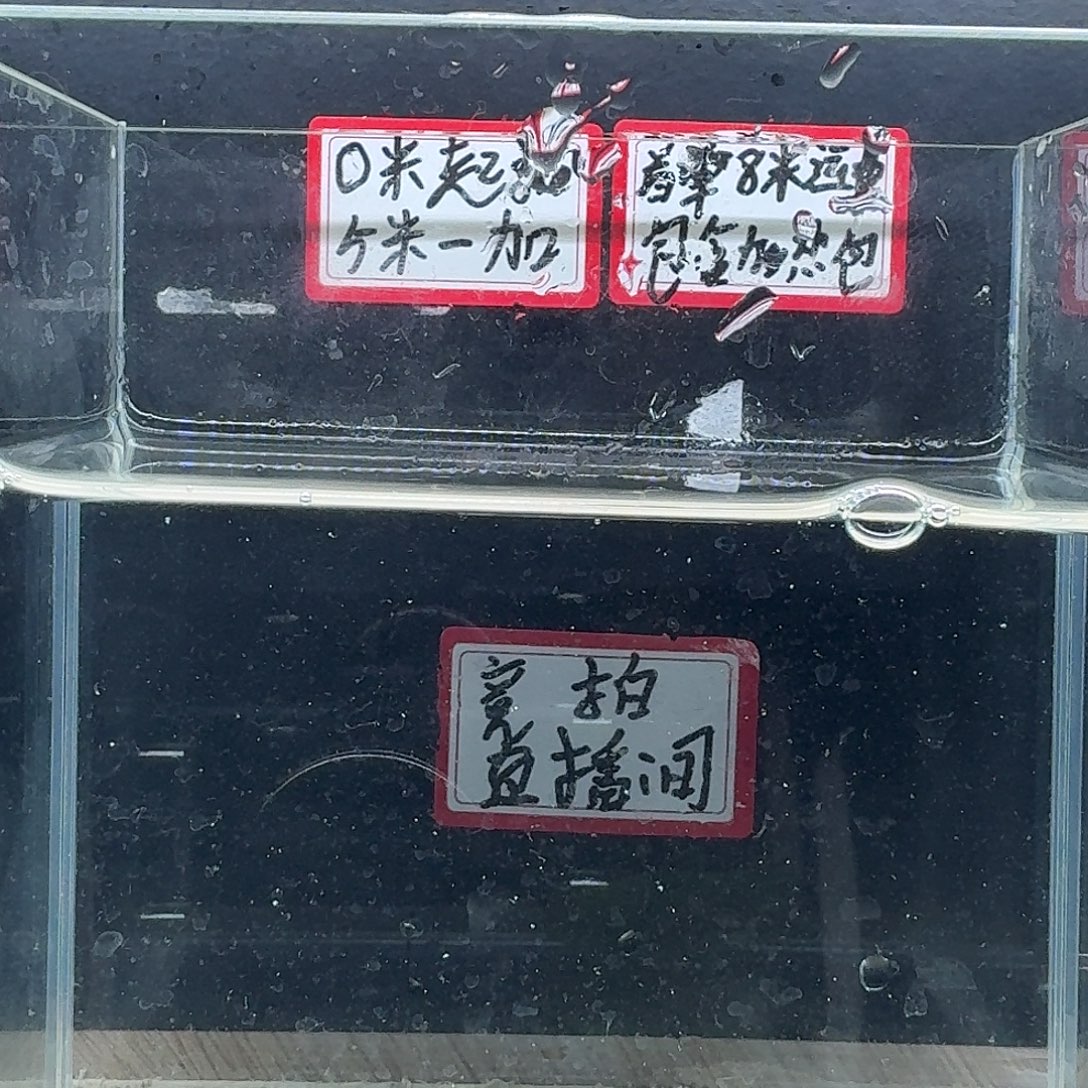 0米起拍
5米一加
首单8米运费
包含加热包
竞拍
直播间